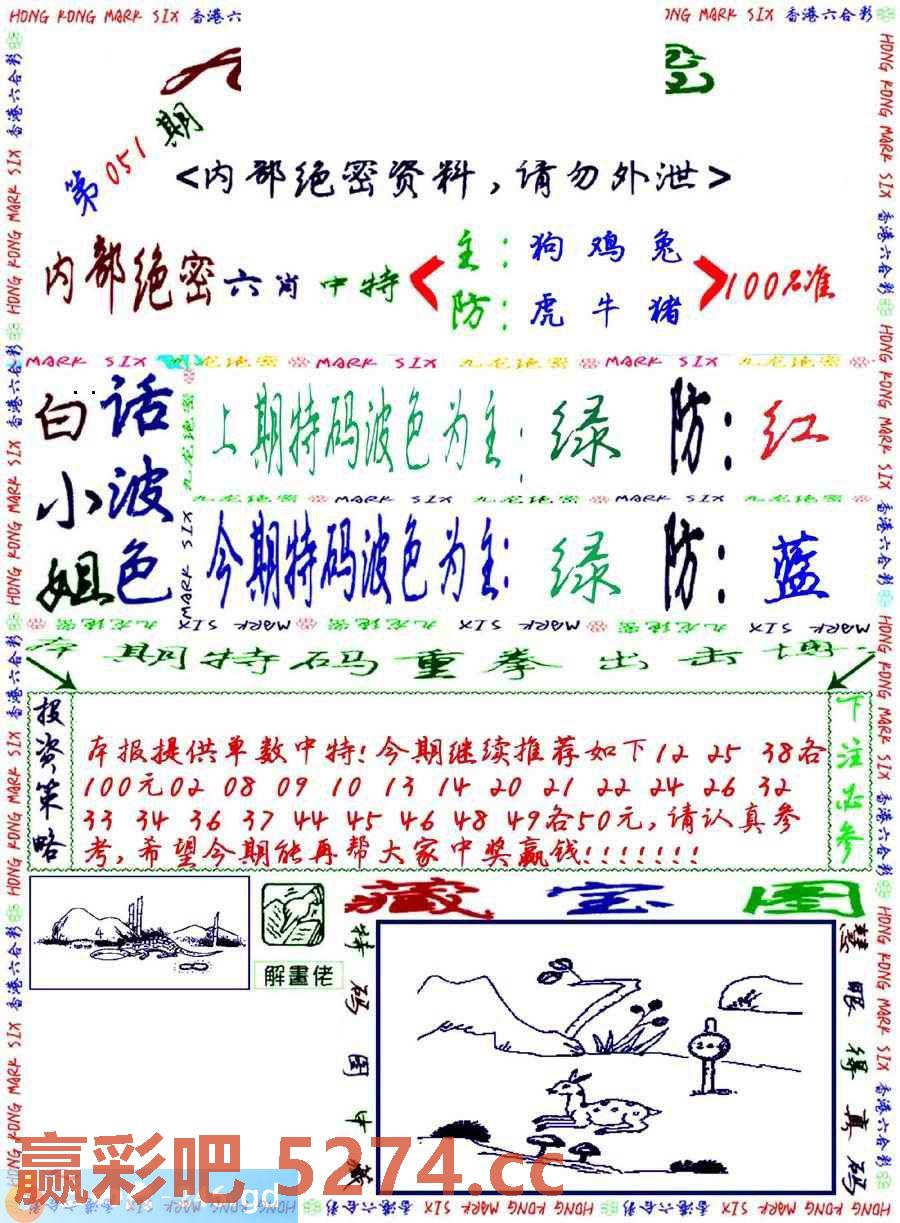 HONG KONG MARK SIX 香港六
ONG MARK SIX 香港六合彩
第051期
<内部绝密资料,请勿外泄>
内部绝密六肖中特
主:狗鸡兔
防:虎牛猪
100%准
MARK SIX 九龙绝密 MARK SIX 九龙绝密 MARK SIX 九龙绝密
白话
小波
姐色
上期特码波色为主:绿 防:红
九龙绝密 MARK SIX 九龙绝密 MARK SIX 九龙绝密
今期特码波色为主:绿 防:蓝
九龙绝密 MARK SIX 九龙绝密 MARK SIX 九龙绝密 MARK SIX
本期特码重拳出击
投资策略
本报提供单数中特!今期继续推荐如下12 25 38各
100元02 08 09 10 13 14 20 21 22 24 26 32
33 34 36 37 44 45 46 48 49各50元,请认真参
考,希望今期能再帮大家中奖赢钱!!!!!!!
下注必参
解畫佬
藏宝图
特码图中
慧眼得真码
赢彩吧 5274.cc
HONG KONG MARK SIX 香港六合彩